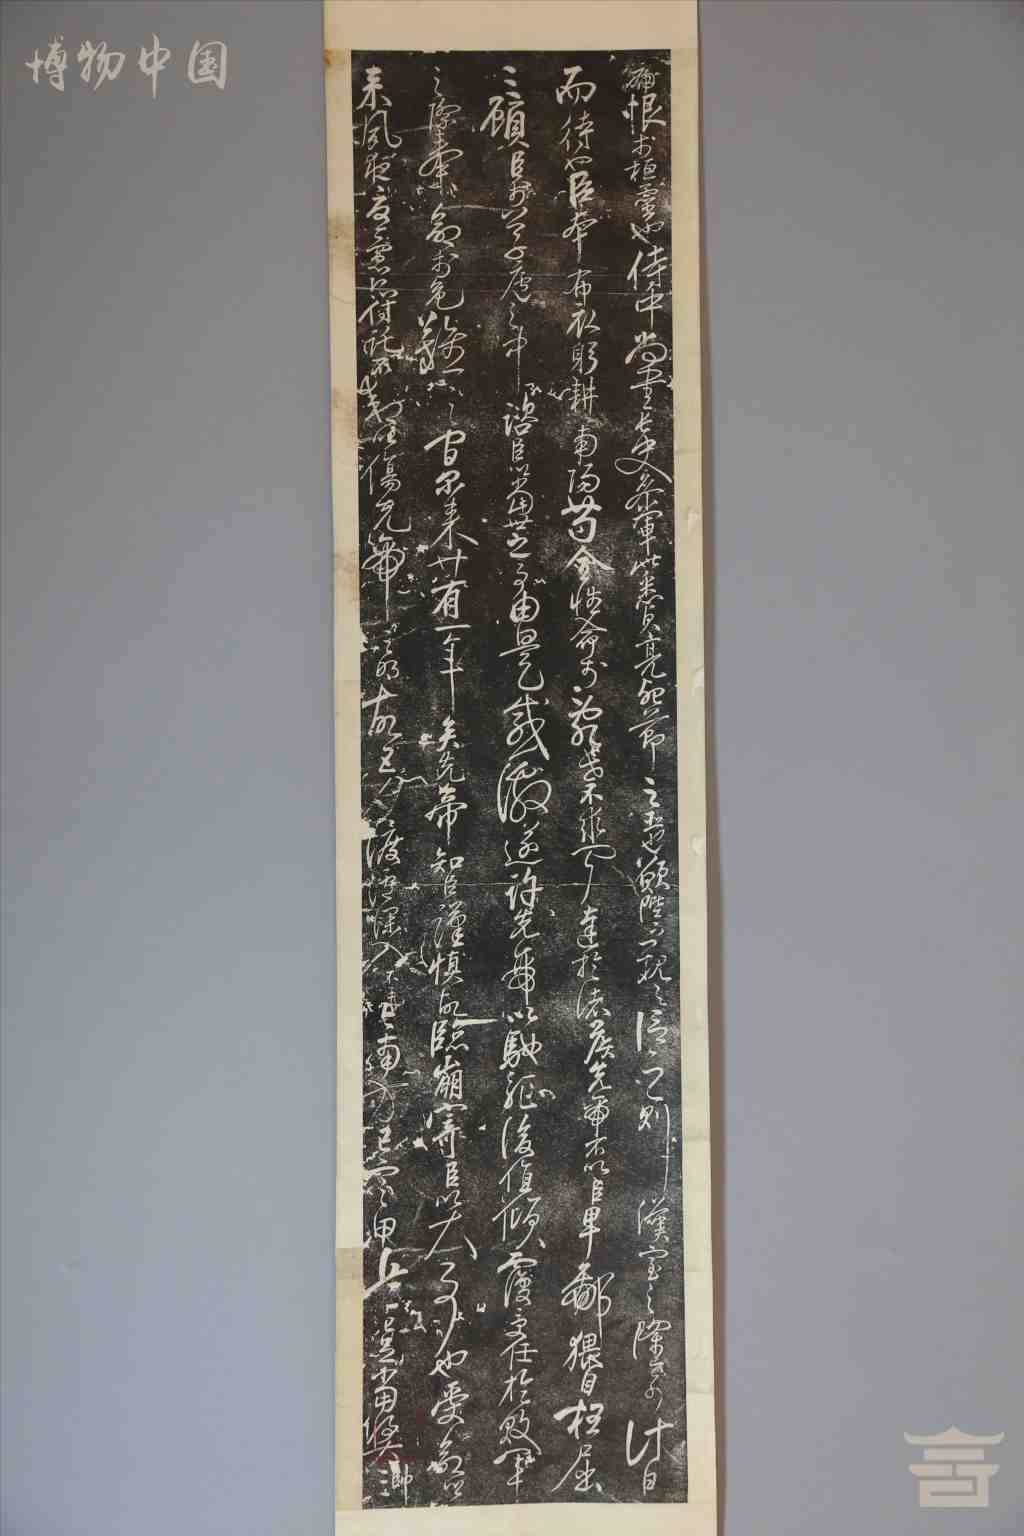 博物中国
痛恨於桓靈也侍中尚書長史參軍此悉貞亮死節之臣也願陛下親之信之則漢室之隆可計日
而待也臣本布衣躬耕南陽苟全性命於亂世不求聞達於諸侯先帝不以臣卑鄙猥自枉屈
三顧臣於草廬之中諮臣以當世之事由是感激遂許先帝以馳驅後值傾覆受任於敗軍
之際奉命於危難之間爾來廿有一年矣先帝知臣謹慎故臨崩寄臣以大事也受命以
來夙夜憂慮恐付託不效以傷先帝之明故五月渡瀘深入不毛今南方已定甲兵已足當獎帥三